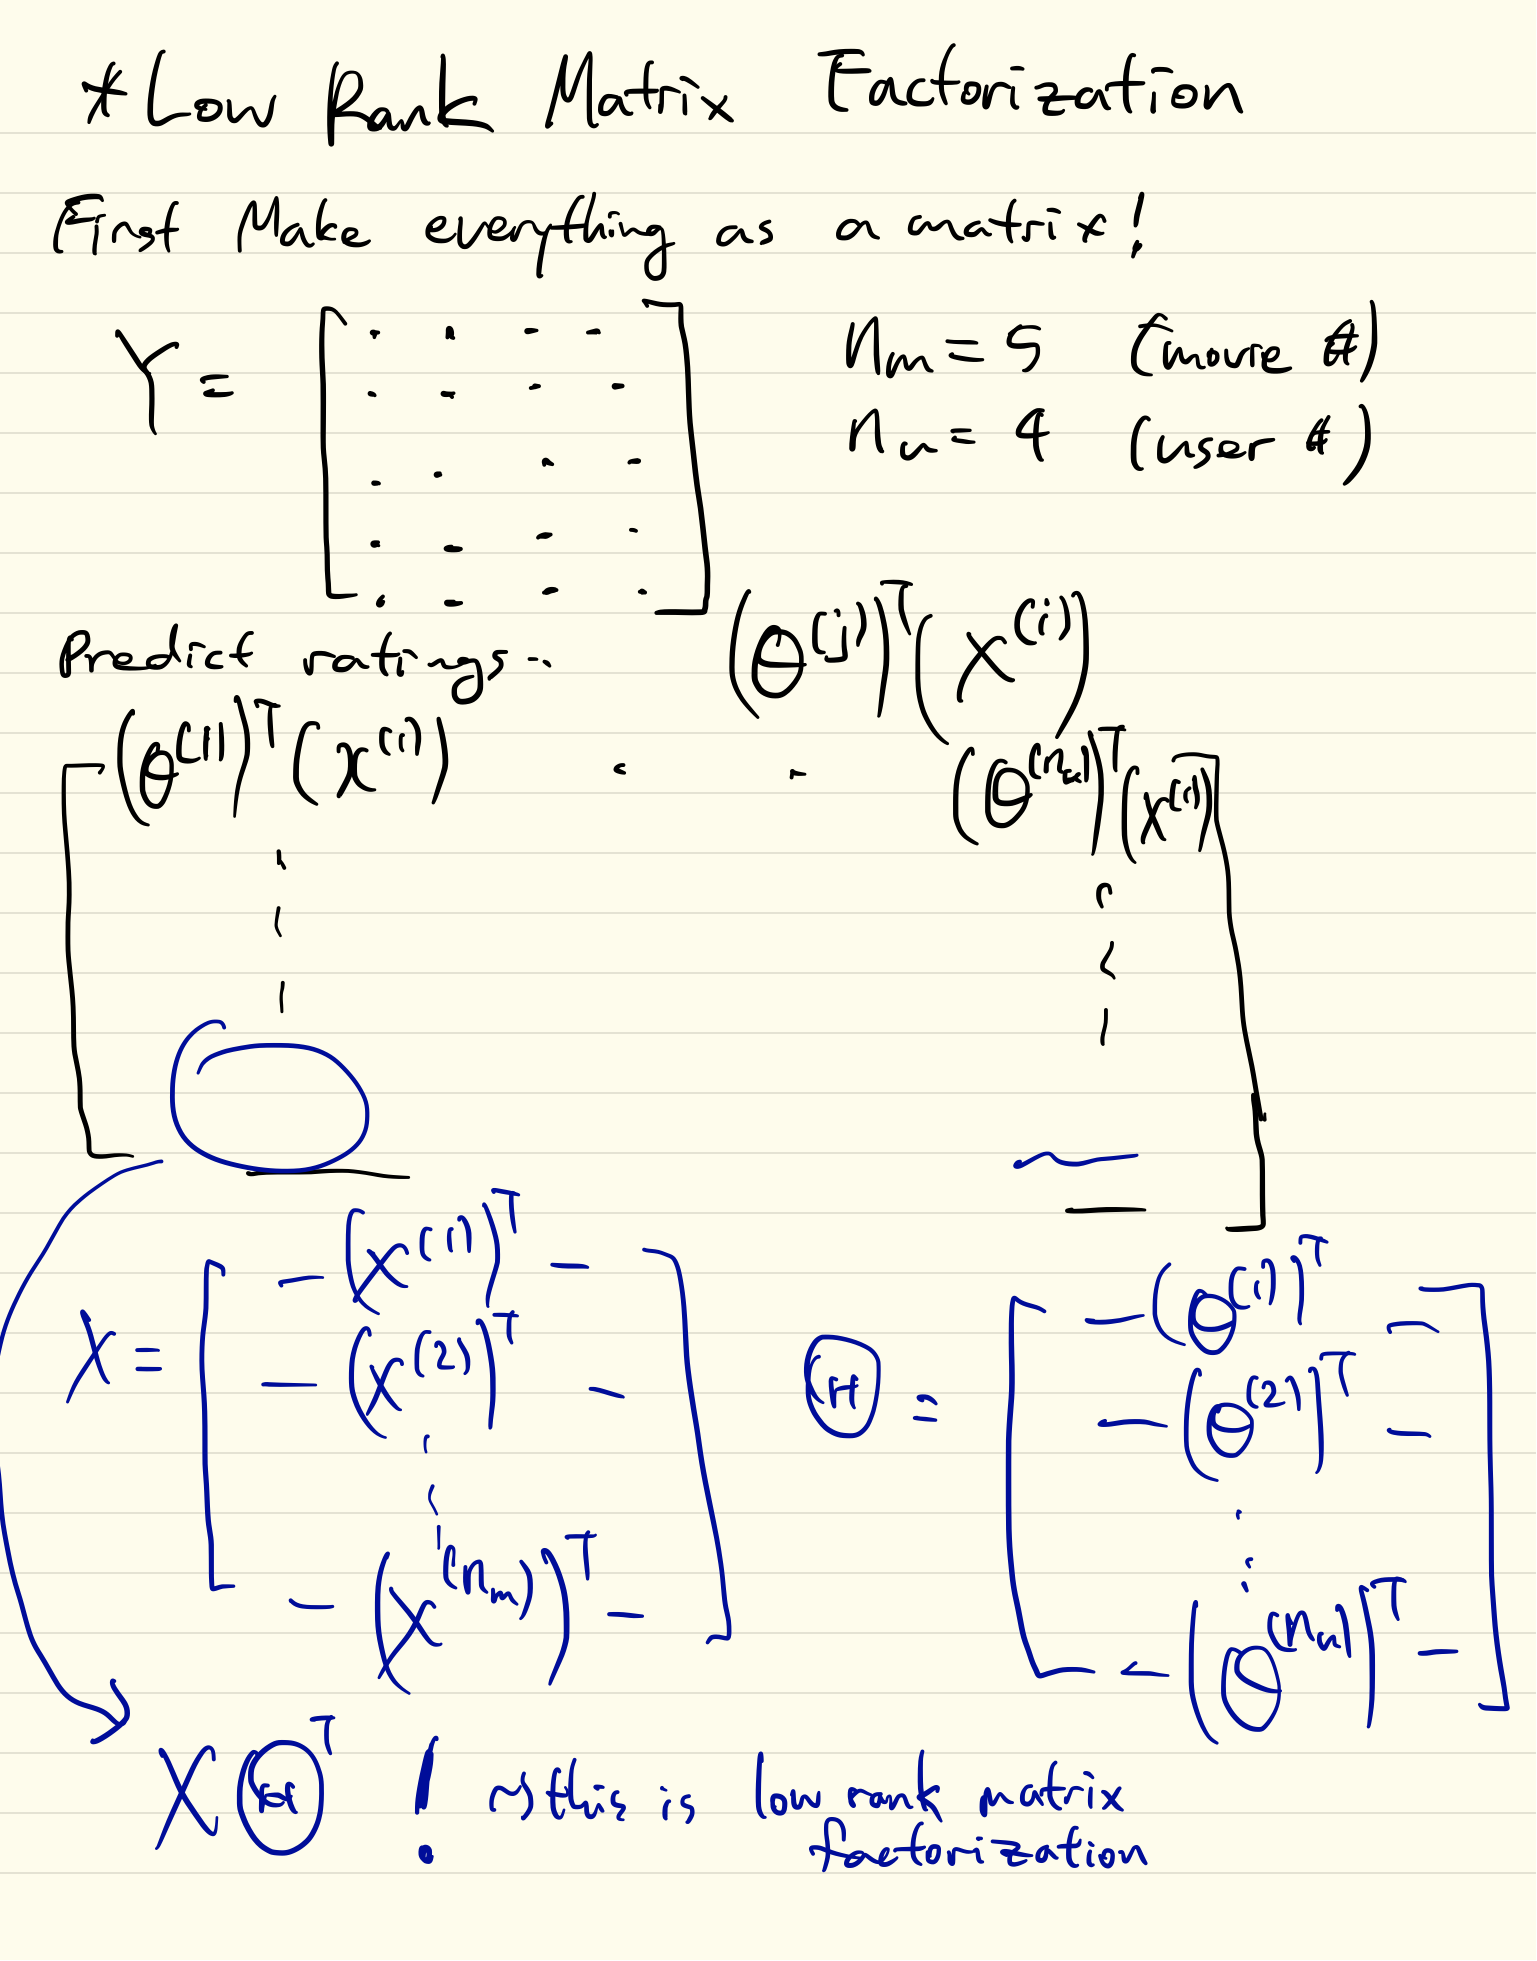 *Low Rank Matrix Factorization
First Make everything as a matrix!
Y = [ · · · · ] n_m = 5 (movie #)
n_u = 4 (user #)
Predict ratings... (θ^(j))^T (x^(i))
(θ^(1))^T (x^(1)) · · (θ^(n_u))^T (x^(1))
X = [ — (x^(1))^T —
— (x^(2))^T —
⋮
— (x^(n_m))^T — ]
Θ = [ — (θ^(1))^T —
— (θ^(2))^T —
⋮
— (θ^(n_u))^T — ]
XΘ^T ! ~> this is low rank matrix
factorization